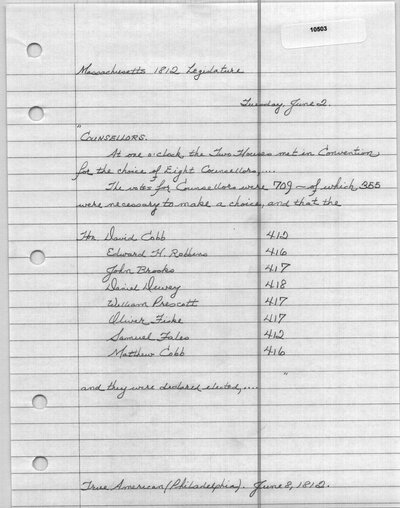 10503
Massachusetts 1812 Legislature
Tuesday, June 2.
"
COUNSELLORS.
At one o'clock the Two Houses met in Convention
for the choice of Eight Counsellors,....
The votes for Counsellors were 709 – of which 355
were necessary to make a choice, and that the
Hon. David Cobb 412
Edward H. Robbins 416
John Brooks 417
Daniel Dewey 418
William Prescott 417
Oliver Fiske 417
Samuel Fales 412
Matthew Cobb 416
"
and they were declared elected,....
True American (Philadelphia). June 8, 1812.